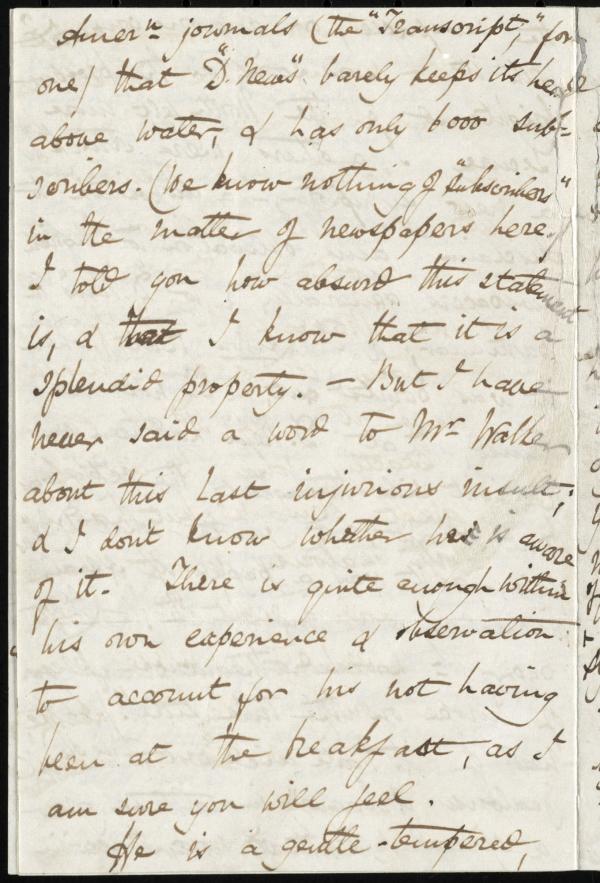 Amern journals (the "Transcript," for
one) that "D. News" barely keeps its head
above water, & has only 6000 sub-
scribers. (We know nothing of "subscribers"
in the matter of newspapers here.)
I told you how absurd this statement
is, & that I know that it is a
splendid property. – But I have
never said a word to Mr Walker
about this last injurious insult;
& I don't know whether he is aware
of it. There is quite enough within
his own experience & observation
to account for his not having
been at the breakfast, as I
am sure you will feel.
He is a gentle-tempered,